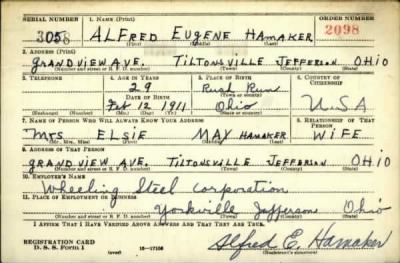 SERIAL NUMBER 1. NAME (Print) ORDER NUMBER
305 ALFRED EUGENE HAMAKER 2098
(First) (Middle) (Last)
2. ADDRESS (Print)
GRANDVIEW AVE. TILTONSVILLE JEFFERSON OHIO
(Number and street or R. F. D. number) (Town) (County) (State)
3. TELEPHONE 4. AGE IN YEARS 5. PLACE OF BIRTH 6. COUNTRY OF CITIZENSHIP
29 Rush Run
DATE OF BIRTH (Town or county)
Feb 12 1911 Ohio USA
(Mo.) (Day) (Yr.) (State or country)
7. NAME OF PERSON WHO WILL ALWAYS KNOW YOUR ADDRESS 8. RELATIONSHIP OF THAT PERSON
Mrs ELSIE MAY HAMAKER WIFE
(Mr., Mrs., Miss) (First) (Middle) (Last)
9. ADDRESS OF THAT PERSON
GRANDVIEW AVE. TILTONSVILLE JEFFERSON OHIO
(Number and street or R. F. D. number) (Town) (County) (State)
10. EMPLOYER'S NAME
Wheeling Steel Corporation
11. PLACE OF EMPLOYMENT OR BUSINESS
Yorkville Jefferson Ohio
(Number and street or R. F. D. number) (Town) (County) (State)
I AFFIRM THAT I HAVE VERIFIED ABOVE ANSWERS AND THAT THEY ARE TRUE.
REGISTRATION CARD
D. S. S. Form 1 (over) 16-17105 Alfred E. Hamaker
(Registrant's signature)